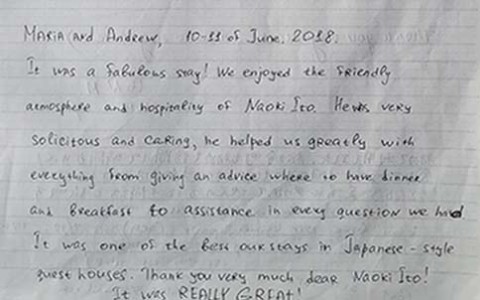 Maria and Andrew, 10-11 of June, 2018.
It was a fabulous stay! We enjoyed the friendly
atmosphere and hospitality of Naoki Ito. He was very
solicitous and caring, he helped us greatly with
everything from giving an advice where to have dinner
and breakfast to assistance in every question we had
It was one of the best our stays in Japanese-style
guest houses. Thank you very much dear Naoki Ito!
It was REALLY GREAT!